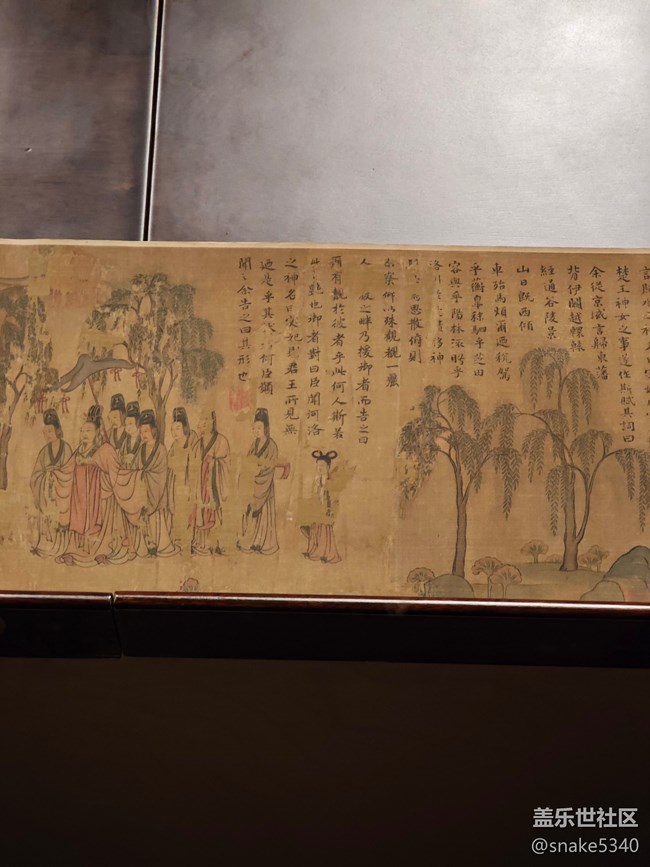 楚王神女之事遂作斯賦其詞曰
余從京域言歸東藩
背伊闕越轘轅
經通谷陵景
山日既西傾
車殆馬煩爾迺稅駕
乎蘅皋秣駟乎芝田
容與乎陽林流眄乎
洛川移神
思散俯則
未察仰以殊觀覩一麗
人之畔乃援御者而告之曰
爾有覿於彼者乎此何人斯若
此之艷也御者對曰臣聞河洛
之神名曰宓妃則君王所見無
迺是乎其狀若何臣願
聞之余告之曰其形也
盖乐世社区
@snake5340